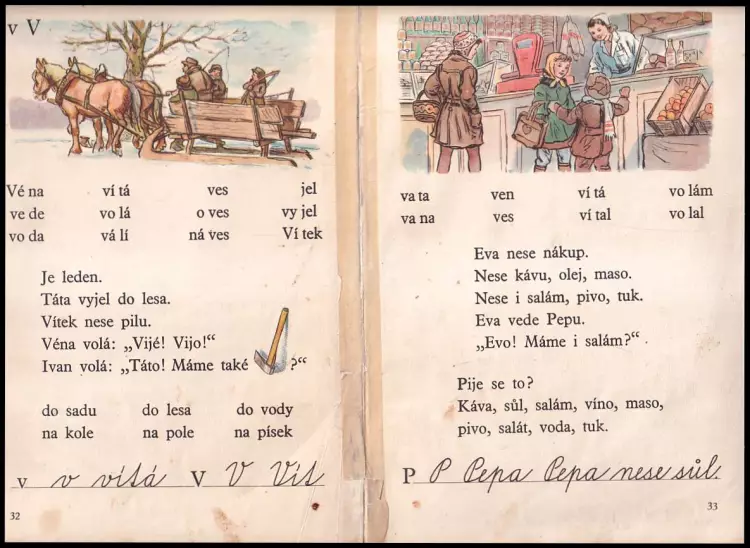 v V
Vé na ví tá ves jel
ve de vo lá o ves vy jel
vo da vá lí ná ves Ví tek
Je leden.
Táta vyjel do lesa.
Vítek nese pilu.
Véna volá: „Vijé! Vijo!“
Ivan volá: „Táto! Máme také ?“
do sadu do lesa do vody
na kole na pole na písek
v v vítá V V Vít
32
va ta ven ví tá vo lám
va na ves ví tal vo lal
Eva nese nákup.
Nese kávu, olej, maso.
Nese i salám, pivo, tuk.
Eva vede Pepu.
„Evo! Máme i salám?“
Pije se to?
Káva, sůl, salám, víno, maso,
pivo, salát, voda, tuk.
P P Pepa Pepa nese sůl.
33